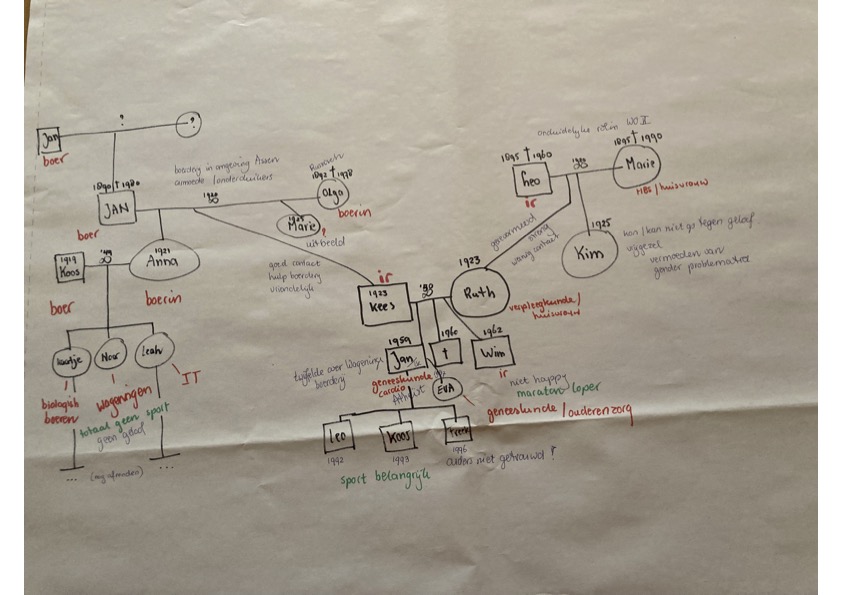 ?
?
Jan
boer
onduidelijke rol in WO II
1895 † 1960
1895 † 1990
Leo
ir
Marie
HBS / huisvrouw
boerderij in omgeving Assen
armoede / onderduikers
1892 † 1978
Olga
boerin
1890 † 1980
JAN
boer
1925
Marie ?
uitbeeld
gereformeerd
streng
weinig contact
1925
Kim
kan / kan niet go tegen geloof
vrijgezel
vermoeden van
gender problematiek
1919
Koos
boer
1921
Anna
boerin
goed contact
hulp boerderij
vriendelijk
ir
1923
Kees
1923
Ruth
verpleegkunde /
huisvrouw
Kaatje
Noor
Leah
IT
biologisch
boeren
Wageningen
totaal geen sport
geen geloof
...
...
twijfelde over Wageningen
boerderij
1959
Jan
geneeskunde
cardio
1960
†
1962
Wim
ir
niet happy
maraton loper
EVA
geneeskunde / ouderenzorg
Leo
1992
Koos
1993
Freek
1996
ouders niet getrouwd !
sport belangrijk